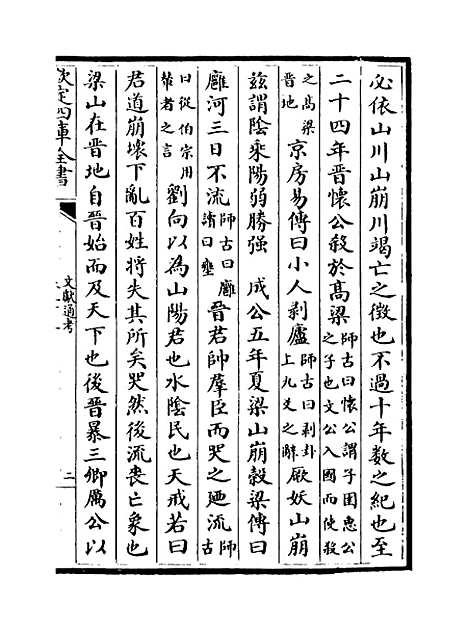 必依山川山崩川竭亡之徴也不過十年數之紀也至
二十四年晉懷公殺於髙梁師古曰懷公謂子圉惠公之子也文公入國而使殺
之髙梁晉地京房易傳曰小人剥廬師古曰剥卦上九爻之辭厥妖山崩
兹謂陰乘陽弱勝强　成公五年夏梁山崩榖梁傳曰
廱河三日不流師古曰廱讀曰壅晉君帥羣臣而哭之廼流師古
曰從伯宗用輦者之言劉向以為山陽君也水陰民也天戒若曰
君道崩壊下亂百姓將失其所矣哭然後流喪亡象也
梁山在晉地自晉始而及天下也後晉暴三卿厲公以
欽定四庫全書
文獻通考
二